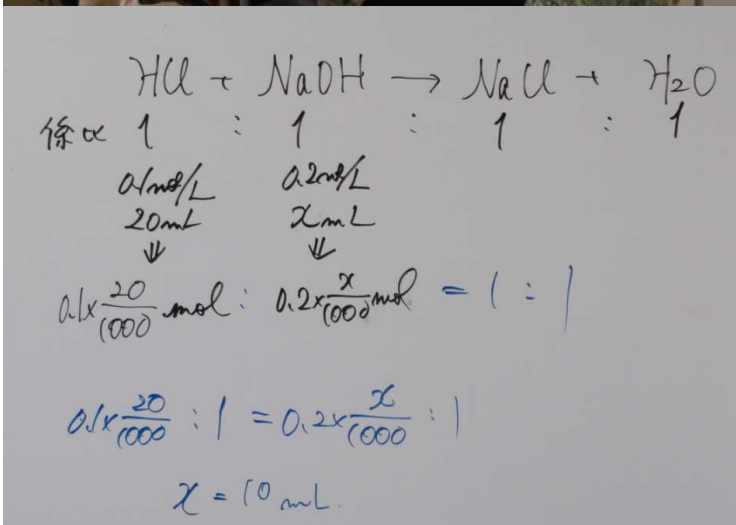 HCl + NaOH → NaCl + H2O
係比 1 : 1 : 1 : 1
0.1mol/L 0.2mol/L
20mL xmL
⇓ ⇓
0.1×20/1000 mol : 0.2×x/1000 mol = 1 : 1
0.1×20/1000 : 1 = 0.2×x/1000 : 1
x = 10 mL.